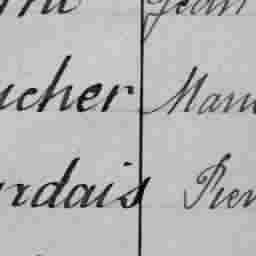 Jean
ucher Mar
rdais Pier